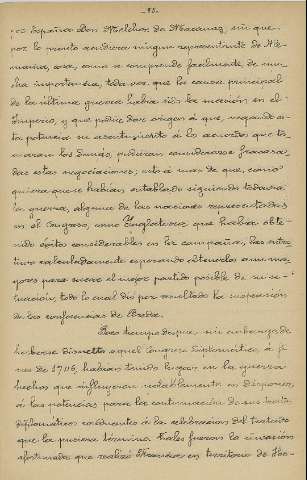 -83-
por España Don Melchor de Macanaz, sin que
por lo pronto acudiera ningún representante de Ale-
mania, cosa, como se comprende facilmente de mu-
cha importancia, toda vez que la causa principal
de la última guerra había sido la sucesión en el
Imperio, y que podía dar origen á que, negando es-
ta potencia su asentimiento á lo acuerdos que to-
maran las demás, pudieran considerarse fracasa-
das estas negociaciones; esto á mas de que, como
quiera que se habían entablado siguiendo todavía
la guerra, algunas de las naciones representadas
en el Congreso, como Inglaterra que habían obte-
nido éxitos considerables en la campaña, las
calculadamente esperando obtenerlos aun ma-
yores para sacar el mejor partido posible de su si-
tuación, todo lo cual dió por resultado la suspensión
de las conferencias de Breda.
Poco tiempo después, sin embargo, de
haberse disuelto aquel Congreso diplomático, á fi-
nes de 1746, habían tenido lugar en la guerra
hechos que influyeron notablemente en disponer
á las potencias para la continuación de sus
diplomáticos conducentes á la celebración del tratado
que la pusiera término. Tales fueron la invasión
afortunada que realizó Francia en territorio de Ho-